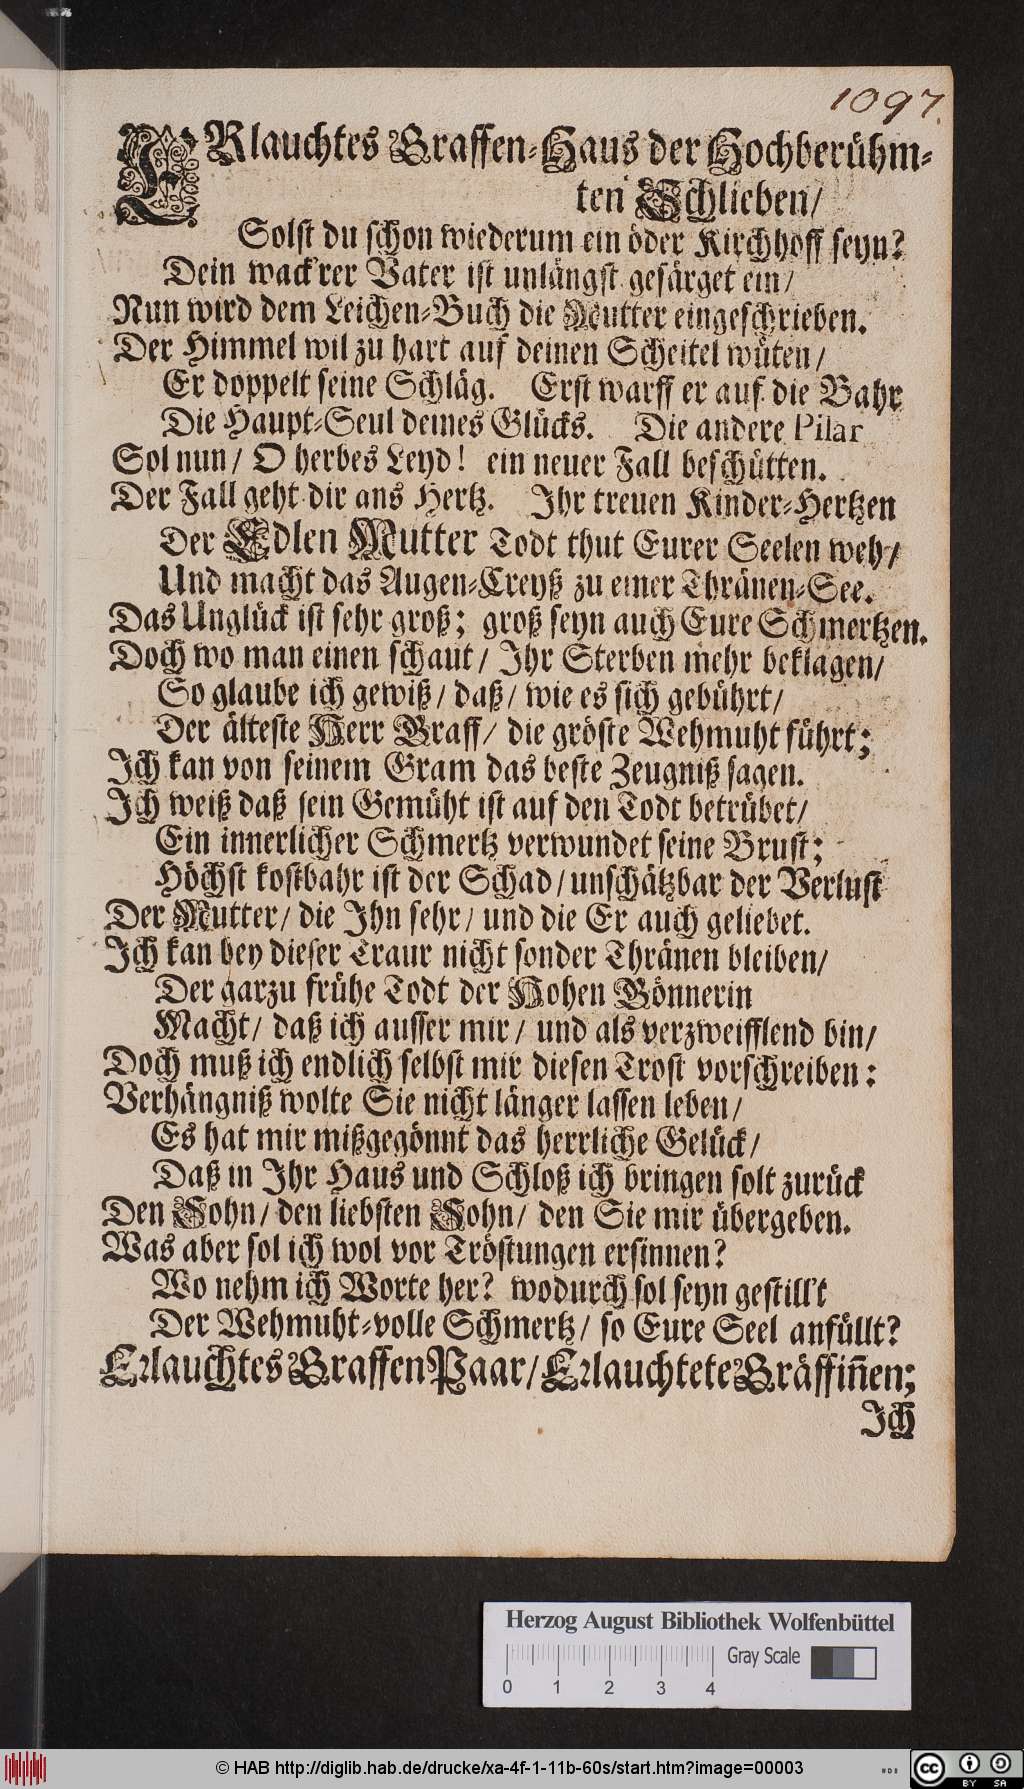 1097.
ERlauchtes Graffen-Haus der Hochberühm-
ten Schlieben/
Solst du schon wiederum ein öder Kirchhoff seyn?
Dein wack'rer Vater ist unlängst gesärget ein/
Nun wird dem Leichen-Buch die Mutter eingeschrieben.
Der Himmel wil zu hart auf deinen Scheitel wüten/
Er doppelt seine Schläg. Erst warff er auf die Bahr
Die Haupt-Seul deines Glücks. Die andere Pilar
Sol nun/ O herbes Leyd! ein neuer Fall beschütten.
Der Fall geht dir ans Hertz. Ihr treuen Kinder-Hertzen
Der Edlen Mutter Todt thut Eurer Seelen weh/
Und macht das Augen-Creyß zu einer Thränen-See.
Das Unglück ist sehr groß; groß seyn auch Eure Schmertzen.
Doch wo man einen schaut/ Ihr Sterben mehr beklagen/
So glaube ich gewiß/ daß/ wie es sich gebührt/
Der älteste Herr Graff/ die gröste Wehmuht führt;
Ich kan von seinem Gram das beste Zeugniß sagen.
Ich weiß daß sein Gemüht ist auf den Todt betrübet/
Ein innerlicher Schmertz verwundet seine Brust;
Höchst kostbahr ist der Schad/ unschätzbar der Verlust
Der Mutter/ die Ihn sehr/ und die Er auch geliebet.
Ich kan bey dieser Traur nicht sonder Thränen bleiben/
Der garzu frühe Todt der Hohen Gönnerin
Macht/ daß ich ausser mir/ und als verzweifflend bin/
Doch muß ich endlich selbst mir diesen Trost vorschreiben:
Verhängniß wolte Sie nicht länger lassen leben/
Es hat mir mißgegönnt das herrliche Gelück/
Daß in Ihr Haus und Schloß ich bringen solt zurück
Den Sohn/ den liebsten Sohn/ den Sie mir übergeben.
Was aber sol ich wol vor Tröstungen ersinnen?
Wo nehm ich Worte her? wodurch sol seyn gestill't
Der Wehmuht-volle Schmertz/ so Eure Seel anfüllt?
Erlauchtes Graffen Paar/ Erlauchtete Gräffiñen;
Ich
Herzog August Bibliothek Wolfenbüttel
Gray Scale
0 1 2 3 4
© HAB http://diglib.hab.de/drucke/xa-4f-1-11b-60s/start.htm?image=00003
cc BY SA